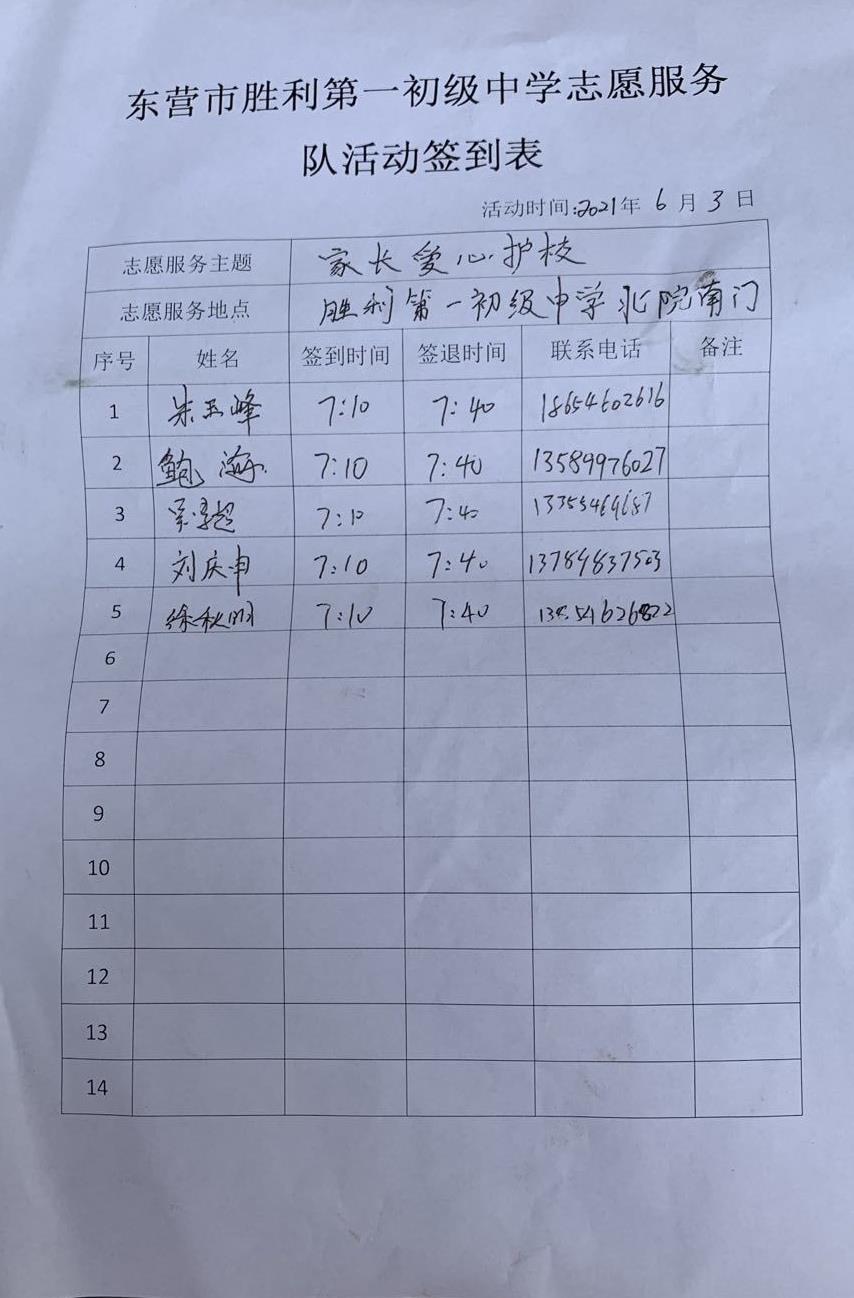 东营市胜利第一初级中学志愿服务
队活动签到表
活动时间:2021年 6 月 3 日
志愿服务主题 家长爱心护校
志愿服务地点 胜利第一初级中学北院南门
序号 姓名 签到时间 签退时间 联系电话 备注
1 朱玉峰 7:10 7:40 18654602616
2 鲍海 7:10 7:40 13589976027
3 7:10 7:40
4 刘庆申 7:10 7:40 13789837503
5 徐秋明 7:10 7:40
6
7
8
9
10
11
12
13
14